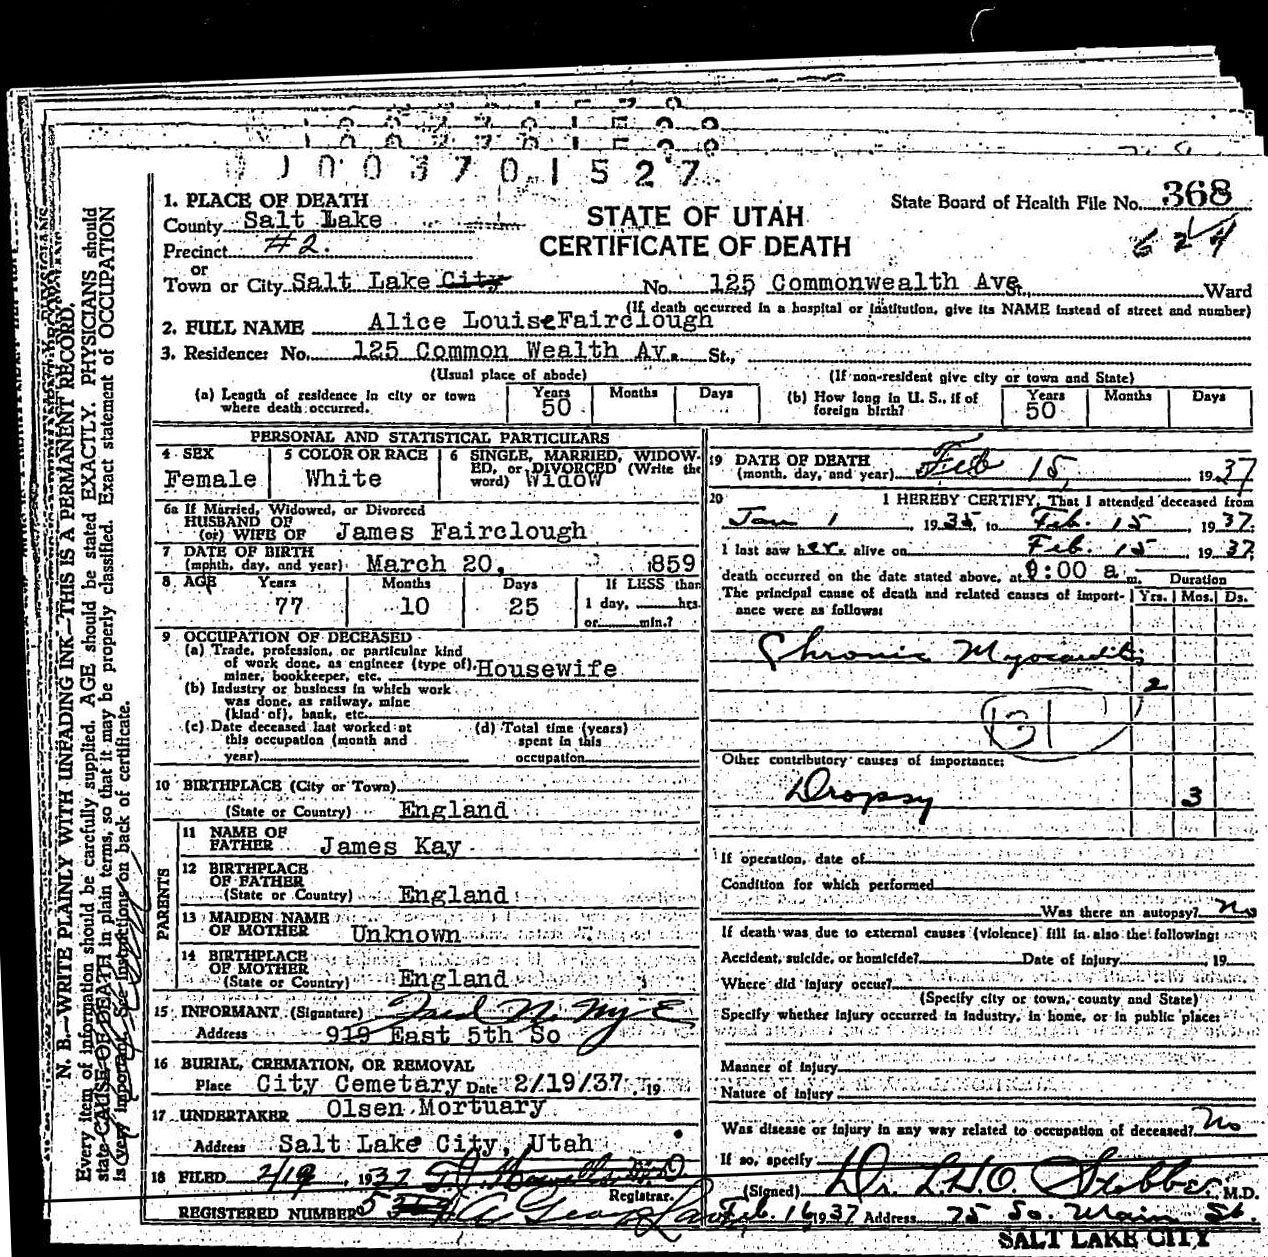 0 1 0 0 3 7 0 1 5 2 7
1. PLACE OF DEATH
County Salt Lake
Precinct #2.
or
Town or City Salt Lake City No. 125 Commonwealth Ave St., Ward
STATE OF UTAH
CERTIFICATE OF DEATH
State Board of Health File No. 368
624
(If death occurred in a hospital or institution, give its NAME instead of street and number)
2. FULL NAME Alice Louise Fairclough
3. Residence: No. 125 Common Wealth Av. St.,
(Usual place of abode) (If non-resident give city or town and State)
(a) Length of residence in city or town where death occurred. Years 50 Months Days
(b) How long in U. S., if of foreign birth? Years 50 Months Days
PERSONAL AND STATISTICAL PARTICULARS
4 SEX Female
5 COLOR OR RACE White
6 SINGLE, MARRIED, WIDOWED, or DIVORCED (Write the word) Widow
6a If Married, Widowed, or Divorced
HUSBAND OF
(or) WIFE OF James Fairclough
7 DATE OF BIRTH
(month, day, and year) March 20, 1859
8 AGE Years 77 Months 10 Days 25 If LESS than
1 day, hrs.
or min.?
9 OCCUPATION OF DECEASED
(a) Trade, profession, or particular kind
of work done, as engineer (type of),
miner, bookkeeper, etc. Housewife
(b) Industry or business in which work
was done, as railway, mine
(kind of), bank, etc.
(c) Date deceased last worked at
this occupation (month and
year)
(d) Total time (years)
spent in this
occupation
10 BIRTHPLACE (City or Town)
(State or Country) England
PARENTS
11 NAME OF
FATHER James Kay
12 BIRTHPLACE
OF FATHER
(State or Country) England
13 MAIDEN NAME
OF MOTHER Unknown
14 BIRTHPLACE
OF MOTHER
(State or Country) England
15 INFORMANT (Signature)
Address 919 East 5th So
16 BURIAL, CREMATION, OR REMOVAL
Place City Cemetary Date 2/19/37 19
17 UNDERTAKER Olsen Mortuary
Address Salt Lake City, Utah
18 FILED 1937
Registrar.
REGISTERED NUMBER
19 DATE OF DEATH
(month, day, and year) Feb 15, 1937
20 I HEREBY CERTIFY, That I attended deceased from
Jan 1, 1935 to Feb. 15, 1937.
I last saw her alive on Feb. 15, 1937
death occurred on the date stated above, at :00 a m. Duration
The principal cause of death and related causes of import- Yrs. Mos. Ds.
ance were as follows:
Chronic Myocarditis
2
Other contributory causes of importance:
Dropsy 3
If operation, date of
Condition for which performed
Was there an autopsy? No
If death was due to external causes (violence) fill in also the following:
Accident, suicide, or homicide? Date of injury , 19
Where did injury occur?
(Specify city or town, county and State)
Specify whether injury occurred in industry, in home, or in public place:
Manner of injury
Nature of injury
Was disease or injury in any way related to occupation of deceased? No
If so, specify
(Signed) Dr. L.H.O. Stobbe, M.D.
Feb. 16, 1937 Address 75 So. Main St.
SALT LAKE CITY
N. B.—WRITE PLAINLY WITH UNFADING INK—THIS IS A PERMANENT RECORD.
Every item of information should be carefully supplied. AGE should be stated EXACTLY. PHYSICIANS should
state CAUSE OF DEATH in plain terms, so that it may be properly classified. Exact statement of OCCUPATION
is very important. See instructions on back of certificate.